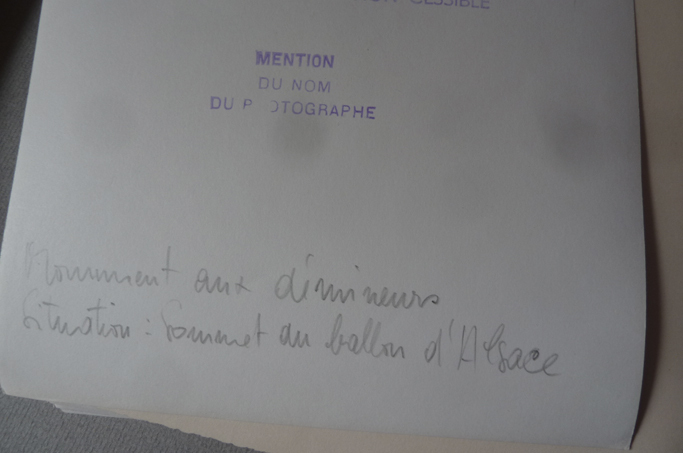 CESSIBLE
MENTION
DU NOM
DU P OTOGRAPHE
Monument aux démineurs
Situation : Sommet du ballon d'Alsace